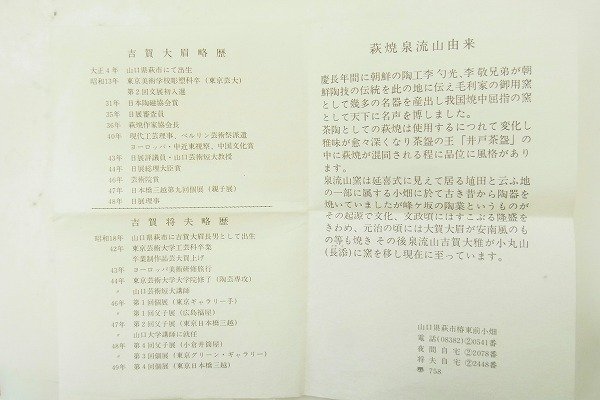 吉賀大眉略歴
大正4年 山口県萩市にて出生
昭和13年 東京美術学校彫塑科卒(東京芸大)
第2回文展初入選
31年 日本陶磁協会賞
35年 日展審査員
36年 萩焼作家協会長
40年 現代工芸理事、ベルリン芸術祭派遣
ヨーロッパ・中近東視察、中国文化賞
43年 日展評議員・山口芸術短大教授
44年 日展総理大臣賞
46年 芸術院賞
47年 日本橋三越第九回個展(親子展)
48年 日展理事
吉賀将夫略歴
昭和18年 山口県萩市に吉賀大眉長男として出生
42年 東京芸術大学工芸科卒業
卒業制作品芸大買上げ
43年 ヨーロッパ美術研修旅行
44年 東京芸術大学大学院修了(陶芸専攻)
〃 山口芸術短大講師
46年 第1回個展(東京ギャラリー手)
〃 第1回父子展(広島福屋)
47年 第2回父子展(東京日本橋三越)
〃 山口大学講師に就任
48年 第4回父子展(小倉井筒屋)
〃 第3回個展(東京グリーン・ギャラリー)
49年 第4回個展(東京日本橋三越)
萩焼泉流山由来
慶長年間に朝鮮の陶工李勺光、李敬兄弟が朝
鮮陶技の伝統を此の地に伝え毛利家の御用窯
として幾多の名器を産出し我国焼中屈指の窯
として天下に名声を博しました。
茶陶としての萩焼は使用するにつれて変化し
雅味が愈々深くなり茶盌の王「井戸茶盌」の
中に萩焼が混同される程に品位に風格があり
ます。
泉流山窯は延喜式に見えて居る埴田と云ふ地
の一部に属する小畑に於て古き昔から陶器を
焼いていましたが峰ヶ坂の陶業というものが
その起源で文化、文政頃にはすこぶる隆盛を
きわめ、元治の頃には大賀大眉が安南風のも
の等も焼き その後泉流山吉賀大雅が小丸山
(長添)に窯を移し現在に至っています。
山口県萩市椿東前小畑
電話(08382)②0541番
夜間自宅②2078番
将夫自宅②2448番
〒758